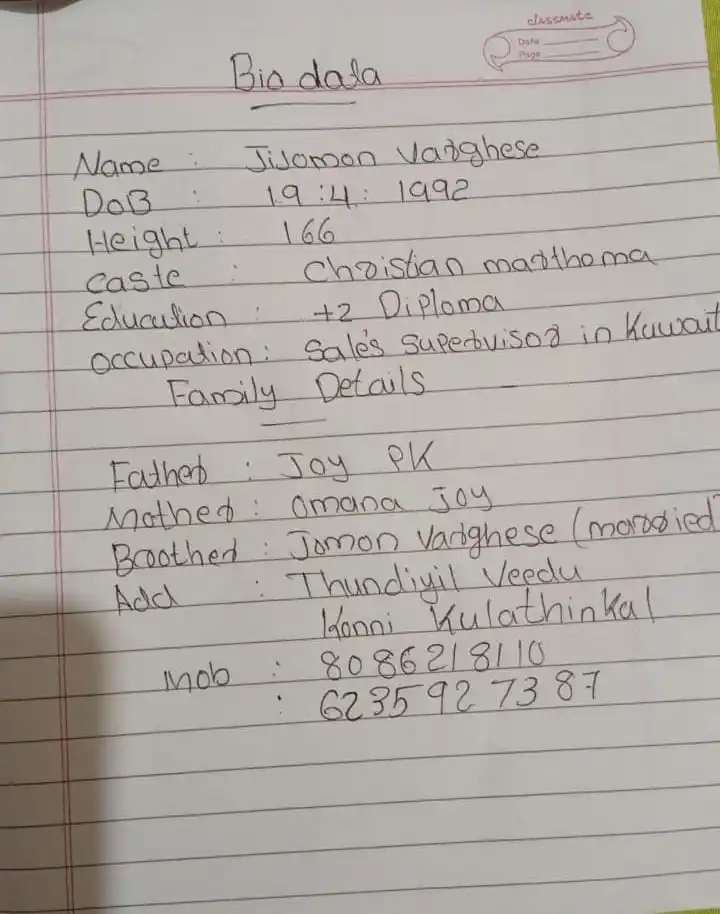 classmate
Date
Page
Bio data
Name : Jijomon Varghese
DoB : 19:4:1992
Height : 166
Caste : Christian marthoma
Education : +2 Diploma
Occupation : Sale's Supervisor in Kuwait
Family Details
Father : Joy PK
Mother : Omana Joy
Brother : Jomon Varghese (married
Add : Thundiyil Veedu
Konni Kulathinkal
Mob : 8086218110
: 6235927387